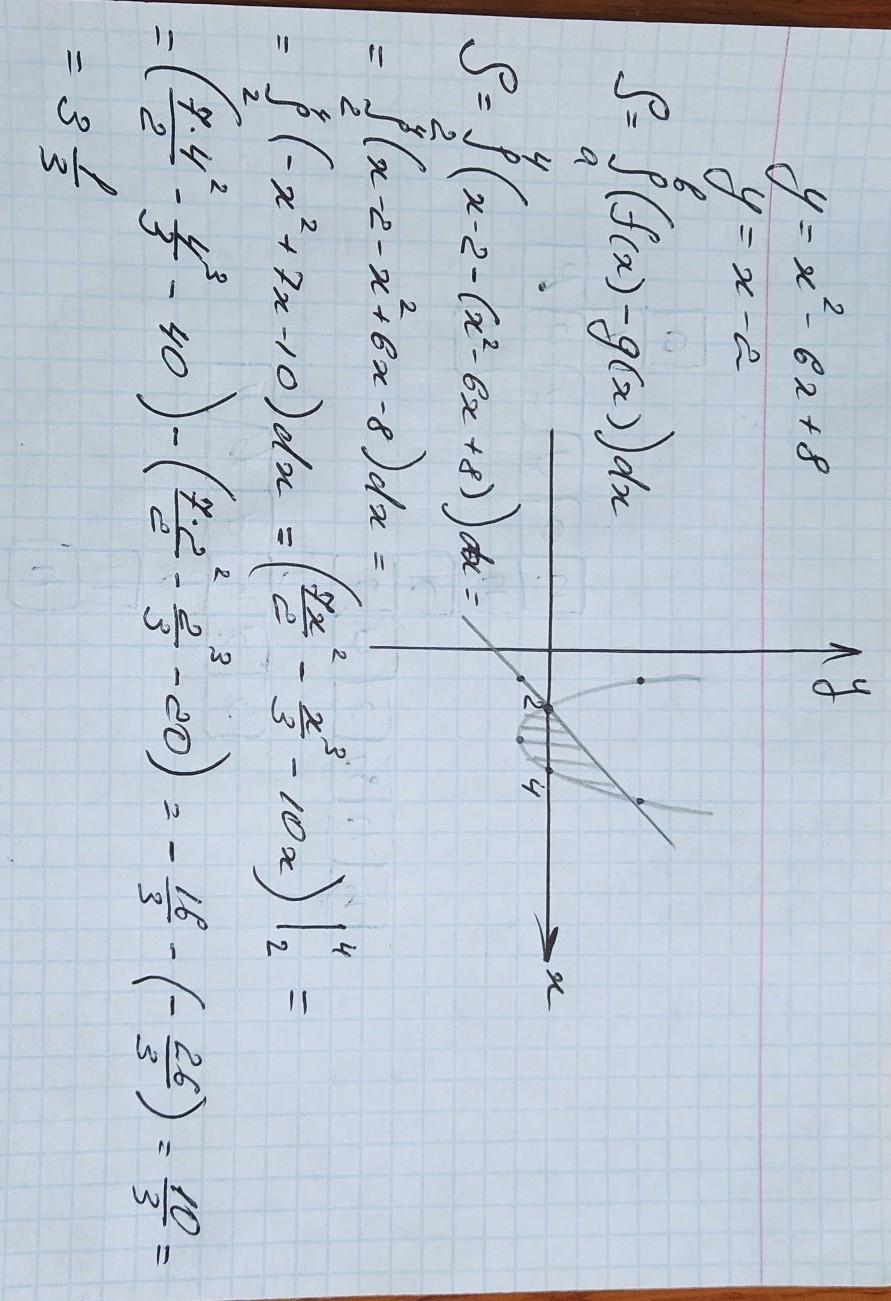 y = x² - 6x + 8
y = x - 2
S = ∫ₐᵇ (f(x) - g(x)) dx
S = ∫₂⁴ (x - 2 - (x² - 6x + 8)) dx =
= ∫₂⁴ (x - 2 - x² + 6x - 8) dx =
= ∫₂⁴ (-x² + 7x - 10) dx = (7x²/2 - x³/3 - 10x) |₂⁴ =
= (7·4²/2 - 4³/3 - 40) - (7·2²/2 - 2³/3 - 20) = -16/3 - (-26/3) = 10/3 =
= 3 1/3
y
x
2
4